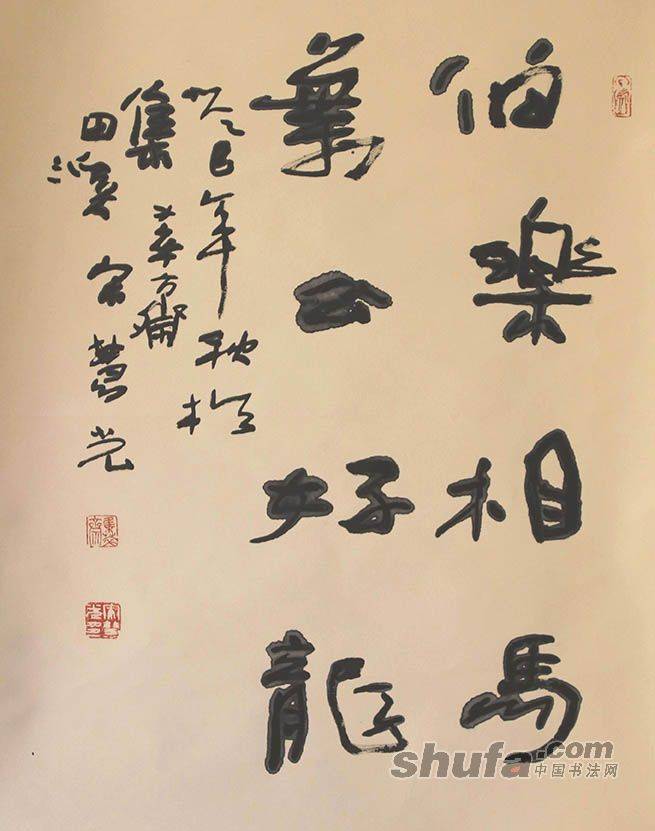 伯樂相馬
葉公好龍
癸巳年秋於
集萃方齋
田溪宋慧光
shufa.com
中国书法网